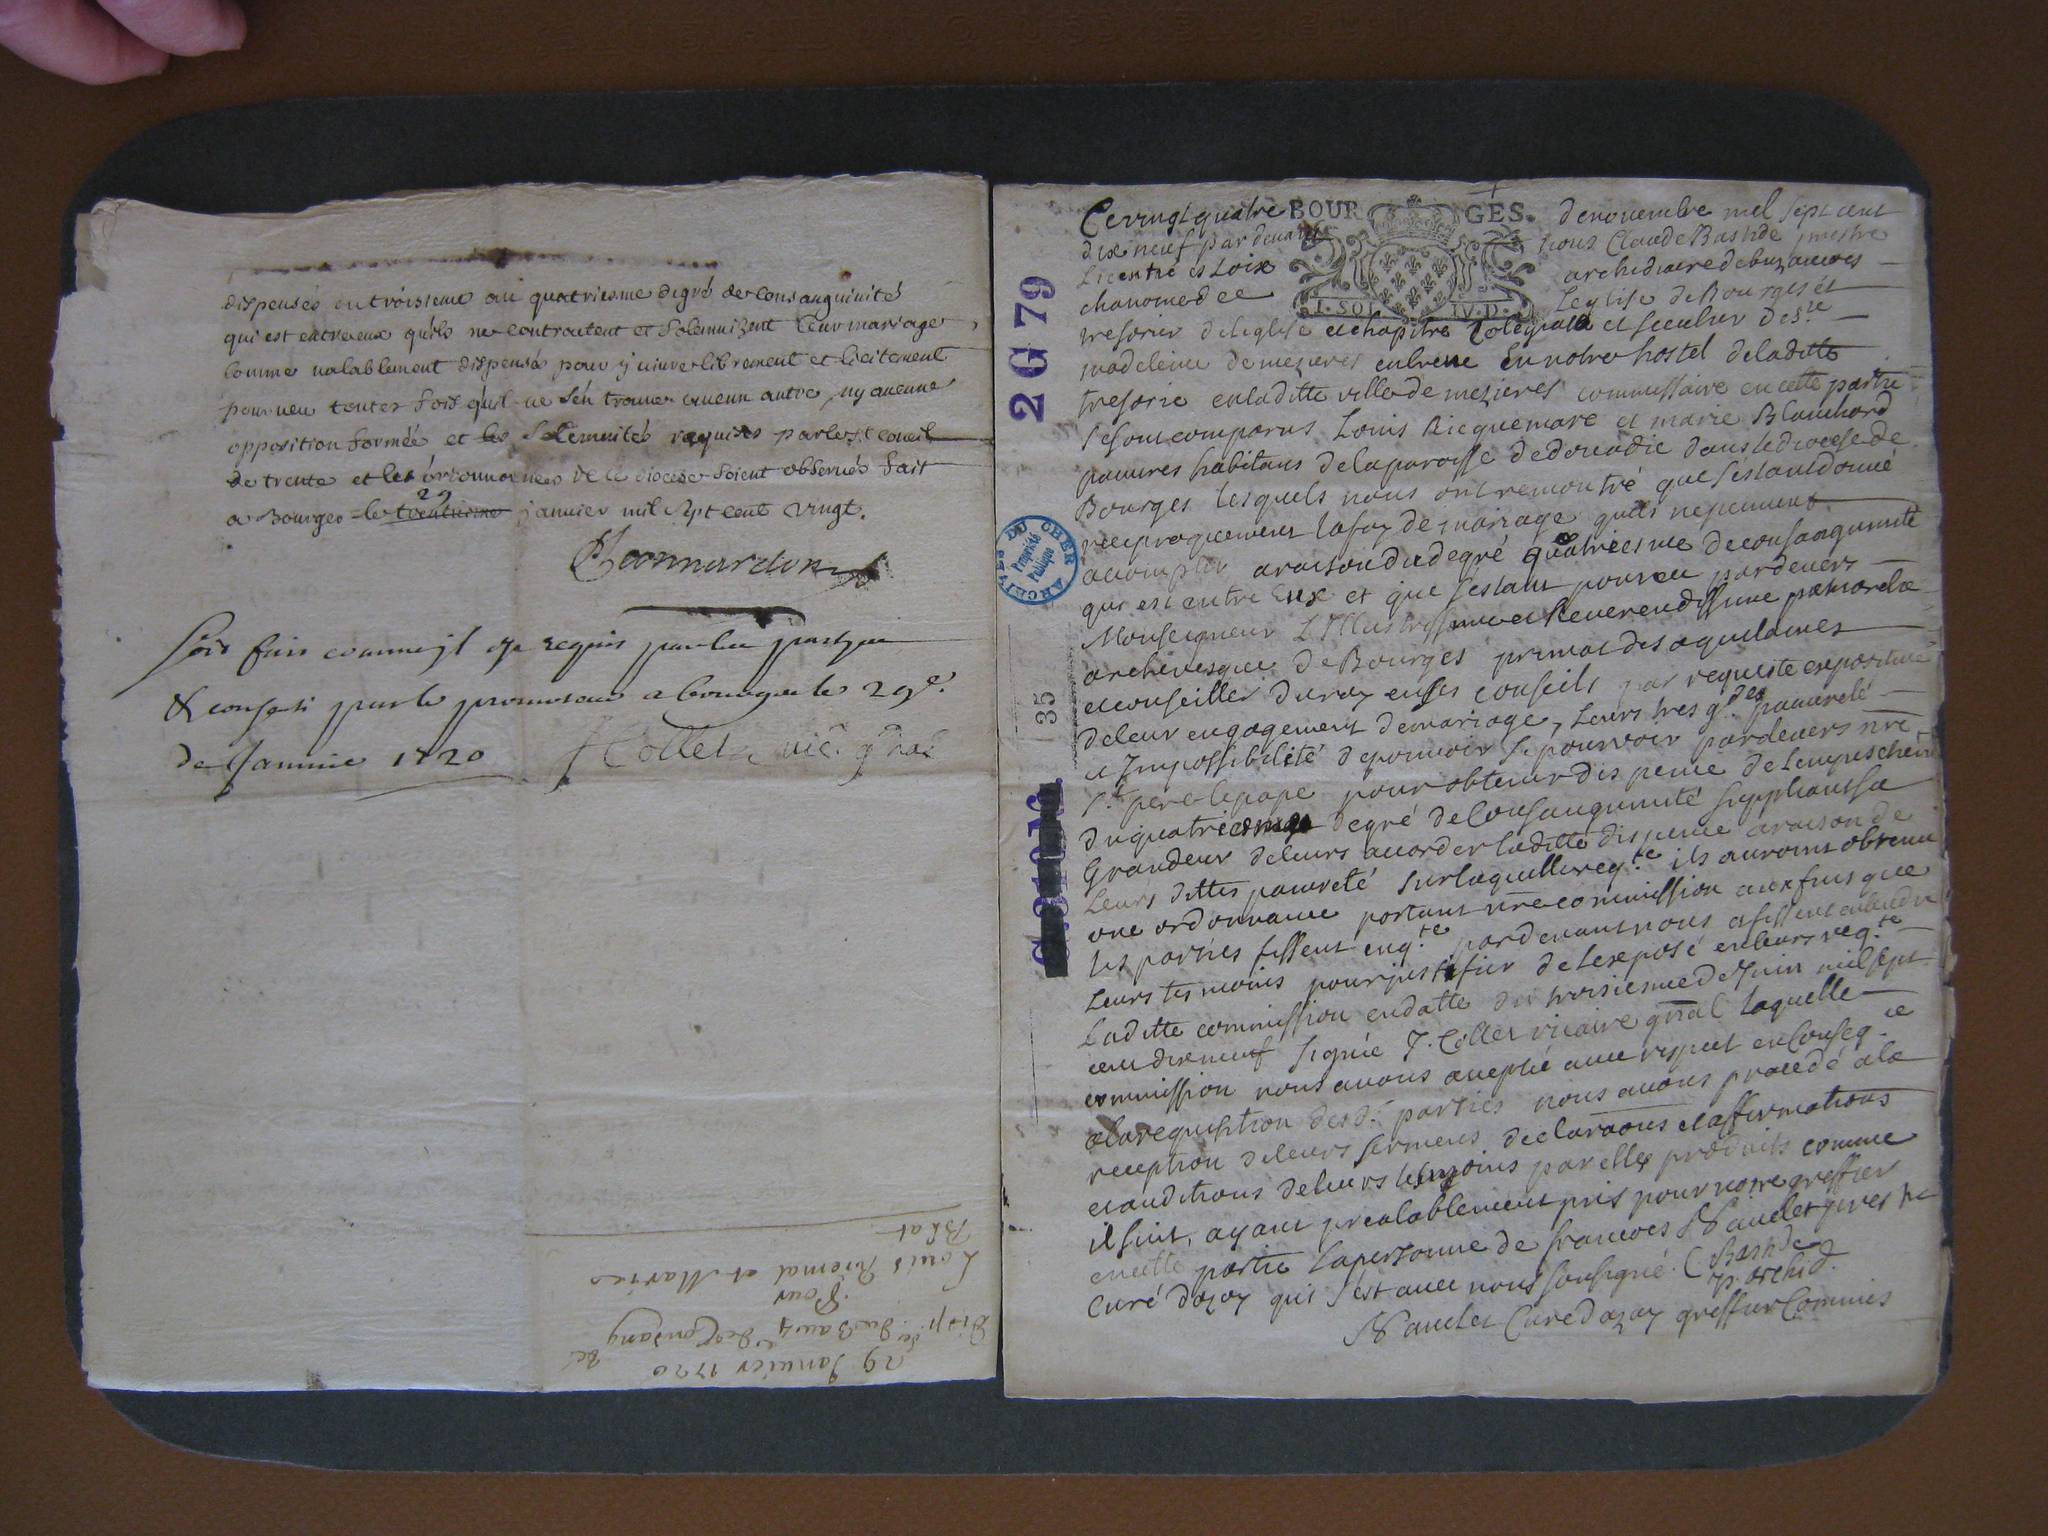 dispensés du troisieme au quatriesme degré de consanguinité
qui est entreeux quils ne contractent et solemnizent leur mariage
comme valablement dispensés pour y vivre librement et licitement
pourveu toutes fois quil ne s'én trouve aucun autre, ny aucune
opposition formée et les solemnités requises par le st concil
de trente et les ordonnances de ce diocese soient observés fait
a Bourges le trentiesme 29 janvier mil sept cent vingt.
Soit fait comme il est requis par les parties
& consenti par le promoteur a bourges le 29e.
de Janvier 1720 J Collet vic. gnal
29 Janvier 1720
Disp. de du Bans & de Consang
Pour
Louis Riemal et Maries
Blat
2 G 79
35
ARCHIVES DU CHER
Propriété
Publique
BOURGES.
L. SOL IV. D.
Ce vingt quatre de novembre mil sept cent
dix neuf par devant nous Claude Bastide prestre
Licentié es Loix archidiacre de buzancois
chanoine de l'eglise de Bourges et
tresorier de leglise et chapitre Colegiale et seculier de ste
madeleine de mezieres en brene En notre hostel de laditte
tresorie en laditte ville de mezieres commissaire en cette partie
se sont comparus Louis Ricquemare et marie Blanchard
pauvres habitans de la paroisse de douadic dans le diocese de
Bourges lesquels nous ont remontré que s'estant donné
reciproquement la foy de mariage quils ne peuvent
acomplir a raison du degré quatriesme de consanguinité
qui est entre Eux et que s'estant pourvu par devers
Monseigneur L'Illustrissime et Reverendissime patriarche
archevesque de Bourges primat des aquitaines
et conseiller du roy en ses conseils par requeste expositive
de leur engagement de mariage, leurs tres gdes pauvreté
et Impossibilité de pouvoir se pourvoir par devers nre
st pere le pape pour obtenir dispense de l'empeschemt
du quatriesme degré de Consanguinité suppliant sa
Grandeur de leurs accorder laditte dispense a raison de
Leurs dittes pauvreté sur laquelle reqte ils auroint obtenu
une ordonnance portant nre commission aux fins que
les parties fissent enqte par devant nous et fissent entendre
Leurs tesmoins pour justifier de l'exposé en leurs reqte
Laditte commission en datte du troisiesme de Juin mil sept
cent dix neuf signée J. Collet vicaire gnal laquelle
commission nous avons acceptée avec respect en Conseqce
a la requisition desd. parties nous avons procedé a la
reception de leurs sermens declaraons et affirmations
et auditions de leurs tesmoins par elles produits comme
il suit, ayant prealablement pris pour notre greffier
en cette partie la personne de francois Naudet prestre
Curé d'azay qui s'est avec nous soussigné. C Bastide
p. archid.
Naudet Curé d'azay greffier Commis